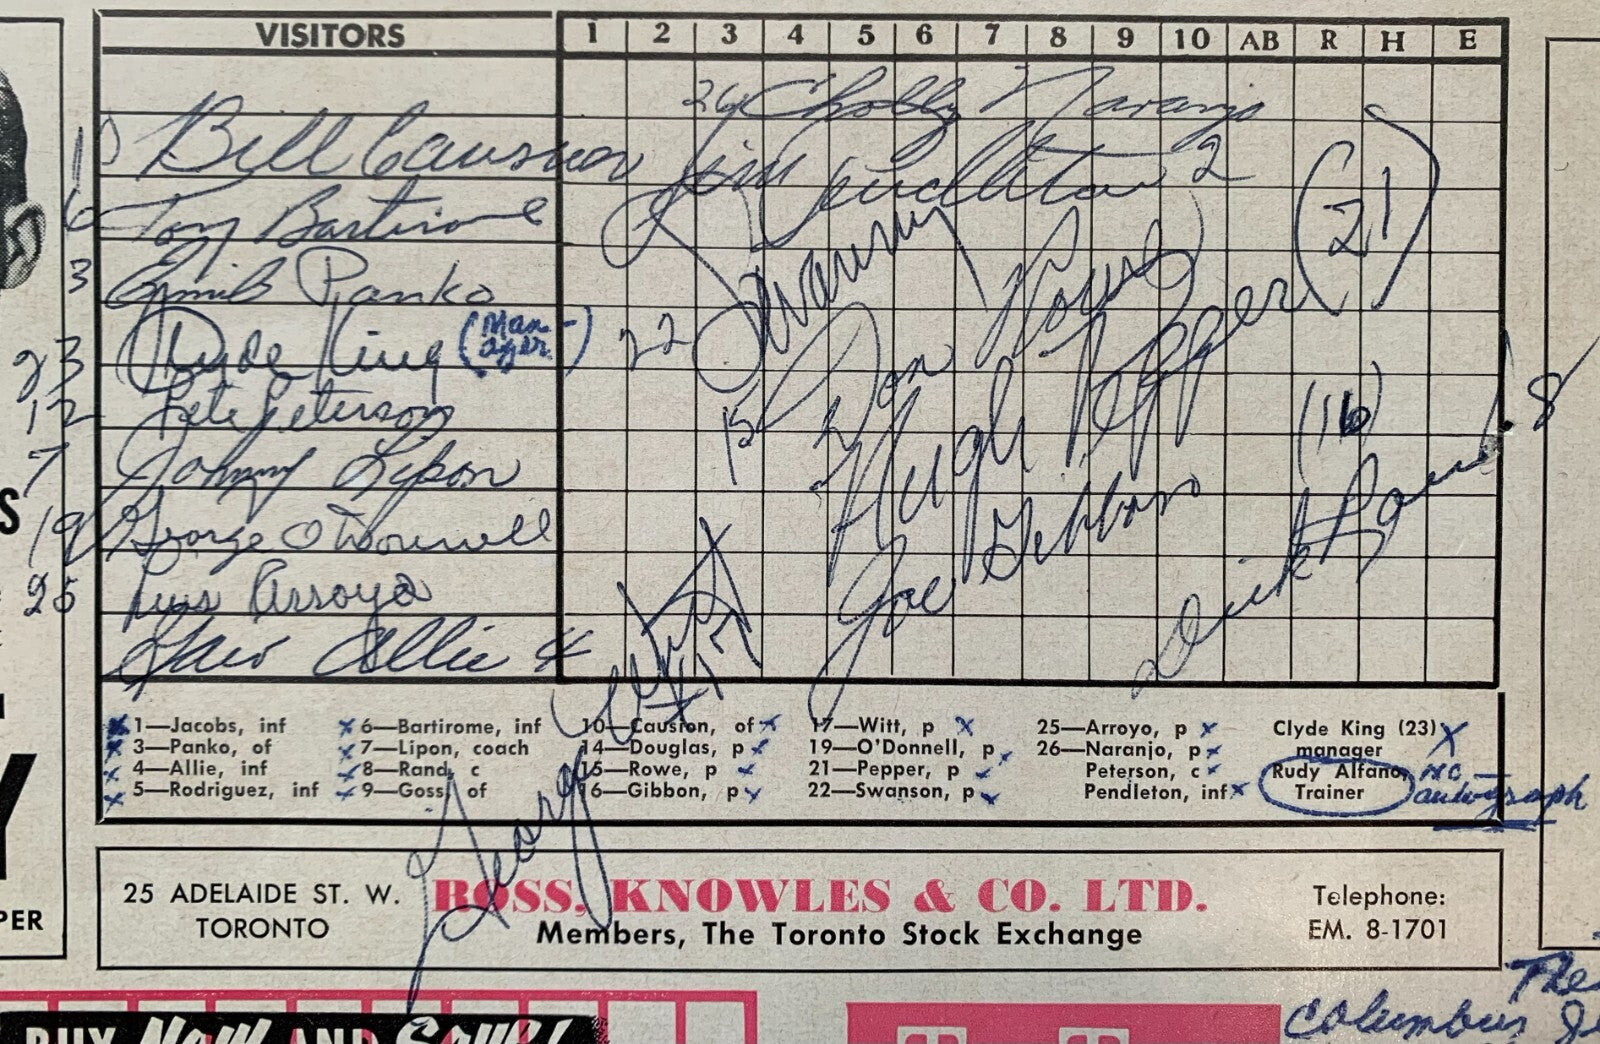 VISITORS 1 2 3 4 5 6 7 8 9 10 AB R H E
26 Cholly Naranjo
10 Bill Causion
Jim Pendleton 2
6 Tony Bartirome
(21)
3 Emil Panko
23 Clyde King (Man-
ager)
22 Swanson
12 Pete Peterson
15 Don Rowe
Hugh Pepper
(16)
7 Johnny Lipon
19 George O'Donnell
Joe Gibbon
Dick Rand 8
25 Luis Arroyo
Gair Allie 4
George Witt #17
1—Jacobs, inf 6—Bartirome, inf 10—Causion, of 17—Witt, p 25—Arroyo, p Clyde King (23)
3—Panko, of 7—Lipon, coach 14—Douglas, p 19—O'Donnell, p 26—Naranjo, p manager
4—Allie, inf 8—Rand, c 15—Rowe, p 21—Pepper, p Peterson, c Rudy Alfano, no
5—Rodriguez, inf 9—Goss, of 16—Gibbon, p 22—Swanson, p Pendleton, inf Trainer autograph
25 ADELAIDE ST. W. ROSS, KNOWLES & CO. LTD. Telephone:
TORONTO Members, The Toronto Stock Exchange EM. 8-1701
PER
The
Columbus
BUY NOW AND SAVE!